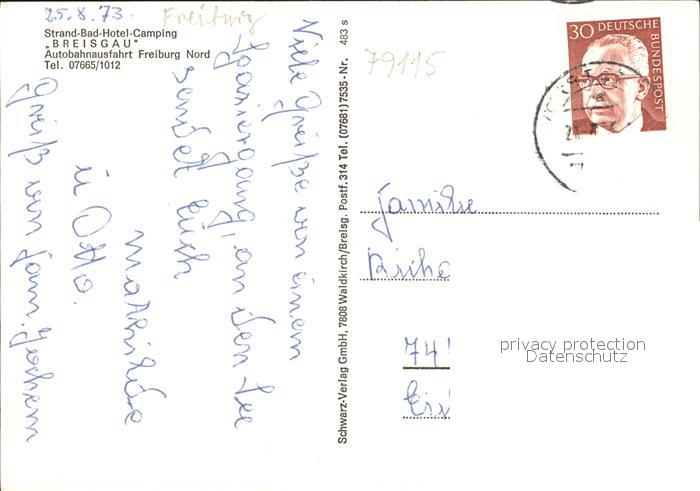 25.8.73.
Freiburg
Strand-Bad-Hotel-Camping
„BREISGAU"
Autobahnausfahrt Freiburg Nord
Tel. 07665/1012
Viele Grüße von einem
Spaziergang, an den See
sendet Euch
Mathilde
u Otto.
Gruß von Fam.
Schwarz-Verlag GmbH, 7808 Waldkirch/Breisg. Postf. 314 Tel. (07681) 7535 - Nr. 483 s
79115
30 DEUTSCHE BUNDESPOST
Familie
74
privacy protection
Datenschutz